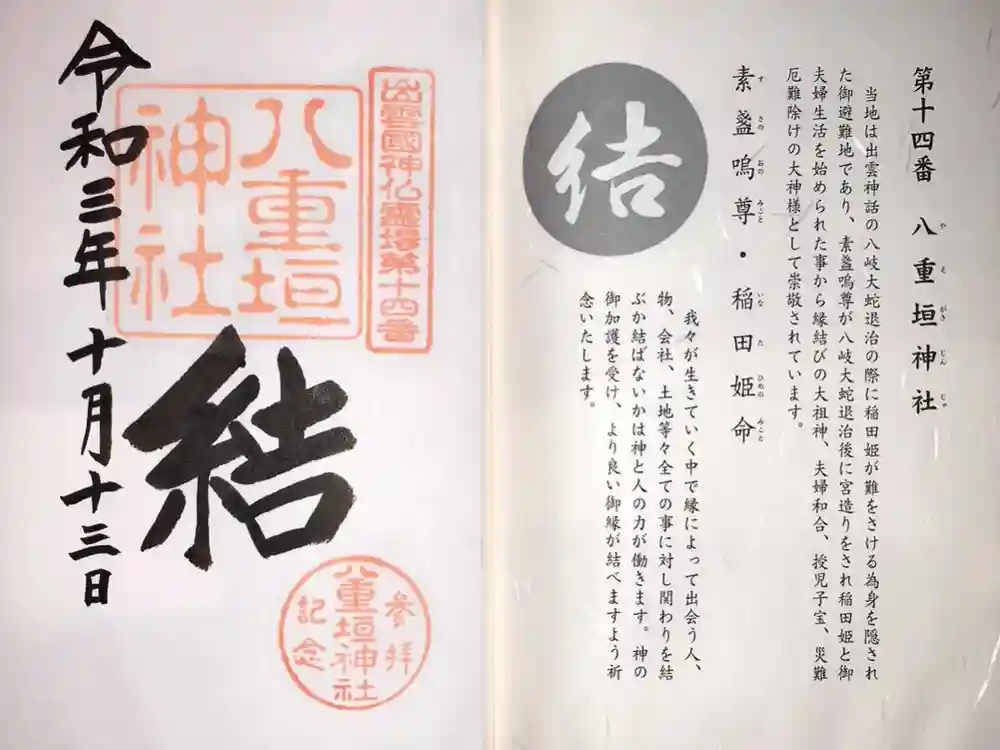 出雲國神仏霊場第十四番
八重垣
神社
結
令和三年十月十三日
参拝
八重垣神社
記念
第十四番 八重垣神社
や え がき じん じゃ
当地は出雲神話の八岐大蛇退治の際に稲田姫が難をさける為身を隠され
た御避難地であり、素盞嗚尊が八岐大蛇退治後に宮造りをされ稲田姫と御
夫婦生活を始められた事から縁結びの大祖神、夫婦和合、授児子宝、災難
厄難除けの大神様として崇敬されています。
素盞嗚尊・稲田姫命
す さの おの みこと いな た ひめの みこと
結
我々が生きていく中で縁によって出会う人、
物、会社、土地等々全ての事に対し関わりを結
ぶか結ばないかは神と人の力が働きます。神の
御加護を受け、より良い御縁が結べますよう祈
念いたします。